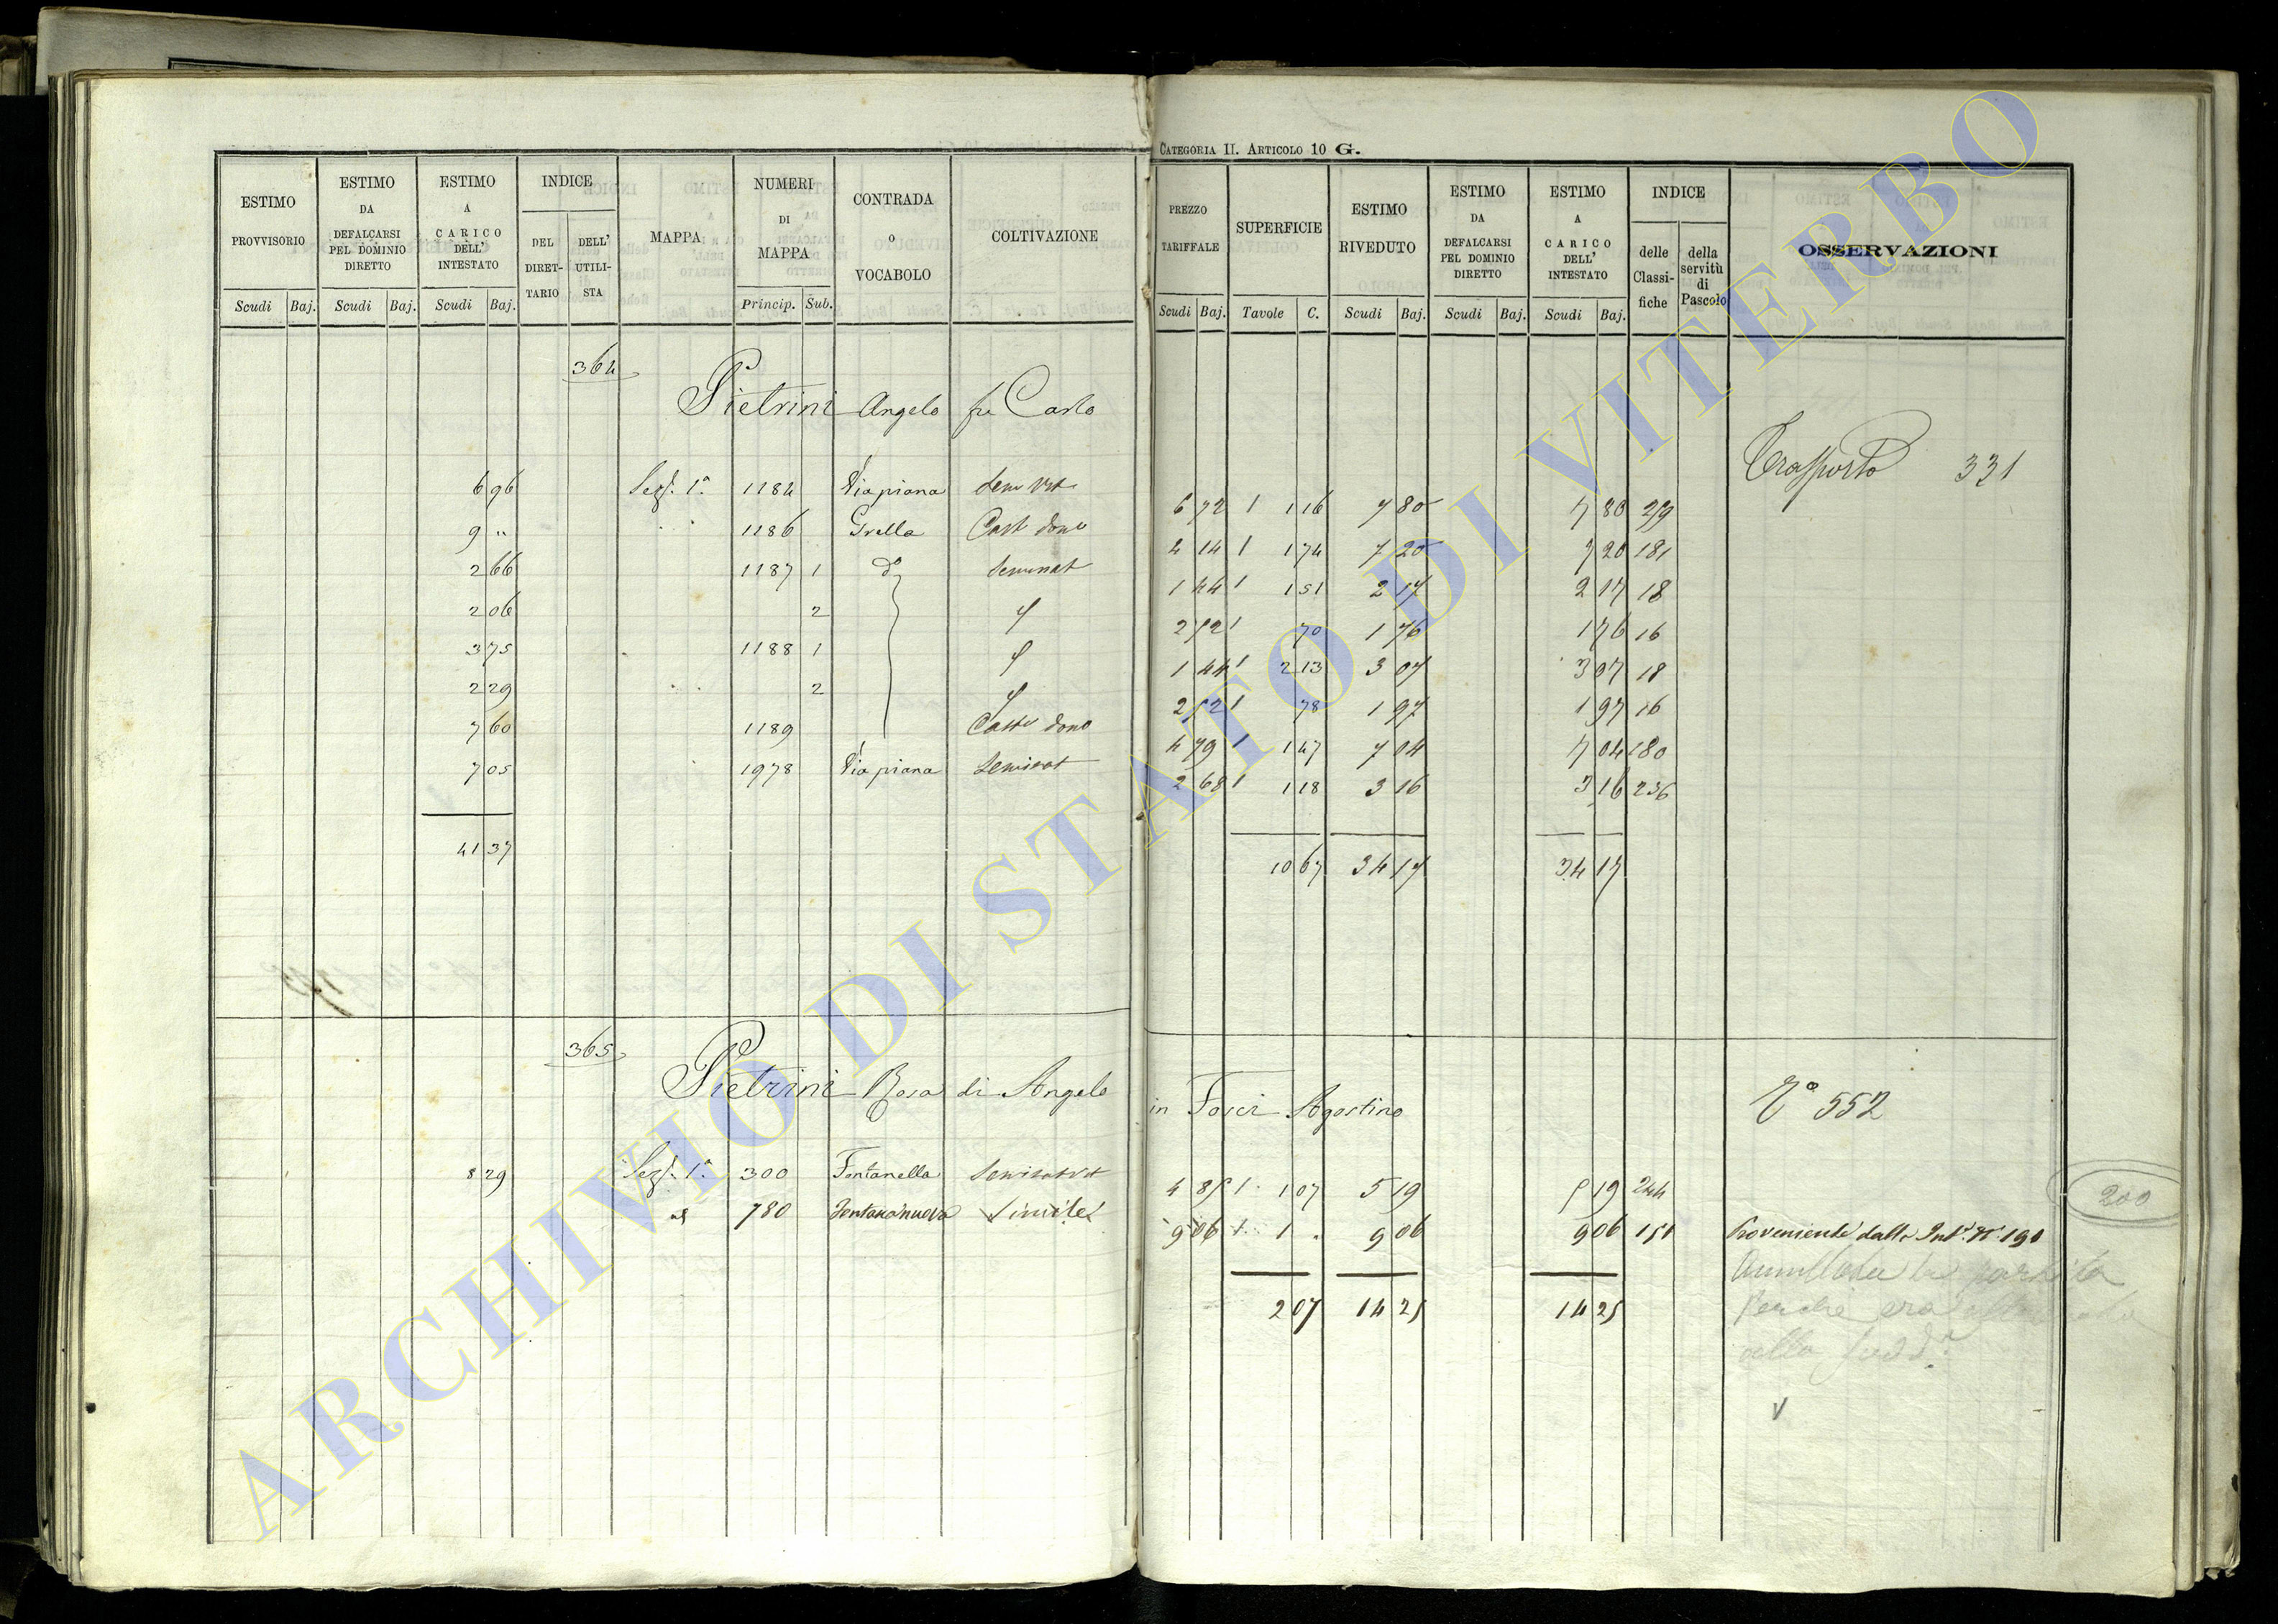 CATEGORIA II. ARTICOLO 10 G.
ESTIMO PROVVISORIO Scudi Baj.
ESTIMO DA DEFALCARSI PEL DOMINIO DIRETTO Scudi Baj.
ESTIMO A CARICO DELL' INTESTATO Scudi Baj.
INDICE DEL DIRETTARIO DELL' UTILISTA
MAPPA
NUMERI DI MAPPA Princip. Sub.
CONTRADA o VOCABOLO
COLTIVAZIONE
PREZZO TARIFFALE Scudi Baj.
SUPERFICIE Tavole C.
ESTIMO RIVEDUTO Scudi Baj.
ESTIMO DA DEFALCARSI PEL DOMINIO DIRETTO Scudi Baj.
ESTIMO A CARICO DELL' INTESTATO Scudi Baj.
INDICE delle Classifiche della servitù di Pascolo
OSSERVAZIONI
364
Pietrini Angelo fu Carlo
Trasporto 331
6 96 Sez. 1a. 1184 Via piana Sem Vit 6 72 1 1 16 7 80 7 80 219
9 " 1186 Grella Cast dom 4 14 1 1 74 7 20 7 20 181
2 66 1187 1 do Seminat 1 44 1 1 51 2 17 2 17 18
2 06 2 2 52 1 70 1 76 1 76 16
3 75 1188 1 1 44 1 2 13 3 07 3 07 18
2 29 2 2 52 1 78 1 97 1 97 16
7 60 1189 Cast dom 4 79 1 1 47 7 04 7 04 180
7 05 1978 Via piana Seminat 2 68 1 1 18 3 16 3 16 236
41 37 10 67 34 17 34 17
365
Pietrini Rosa di Angelo in Fosci Agostino
Vo 552
8 29 Sez. 1a. 300 Fontanella Seminat Vit 4 85 1 1 07 5 19 5 19 244
200
780 Fontananuova Simile 9 06 1 . 9 06 9 06 151 Proveniente dall' Int. N. 190
2 07 14 25 14 25
Annullata la partita
perchè era
alla sudd.a
V
ARCHIVIO DI STATO DI VITERBO